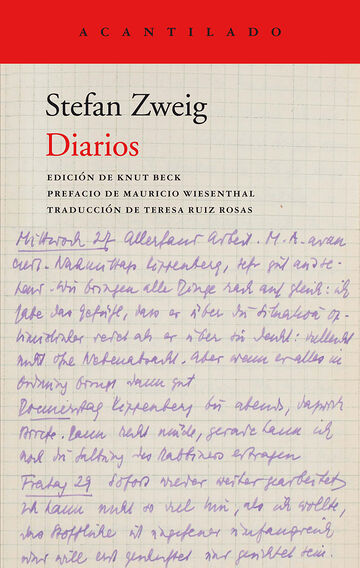 ACANTILADO
Stefan Zweig
Diarios
EDICIÓN DE KNUT BECK
PREFACIO DE MAURICIO WIESENTHAL
TRADUCCIÓN DE TERESA RUIZ ROSAS
Mittwoch 27 Allerhand Arbeit. M. A.
Nachmittags Kippenberg, sehr gut
Wir bringen alle Dinge rasch auf gleich: ich
habe das Gefühl, dass er über die Situation op-
timistischer redet als er über sie denkt: vielleicht
nicht ohne Nebenabsicht. Aber wenn er alles in
Ordnung bringt dann gut
Donnerstag Kippenberg bis abends,
Kann nicht gerade kann ich
noch die Haltung des Rabbiners ertragen
Freitag 29 Sofort wieder weiter gearbeitet
ich kann nicht so viel thun, als ich wollte,
das Stoffliche ist ungeheuer umfangreich
und will erst gesichtet sein.